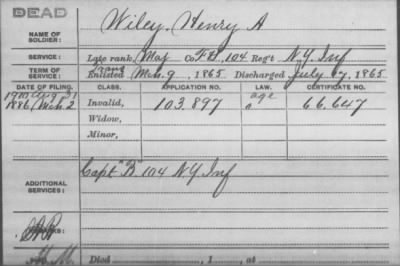 DEAD
NAME OF SOLDIER: Wiley, Henry A
SERVICE: Late rank, Maj Co. F&S, 104 Reg't N.Y. Inf
TERM OF SERVICE: Enlisted Mch 9, 1865 Discharged July 17, 1865
DATE OF FILING. CLASS. APPLICATION NO. LAW. CERTIFICATE NO.
age
1886 Mch 2 Invalid, 103.897 66.647
Widow,
Minor,
ADDITIONAL SERVICES: Capt "B" 104 N.Y. Inf
REMARKS:
Died , 1 , at